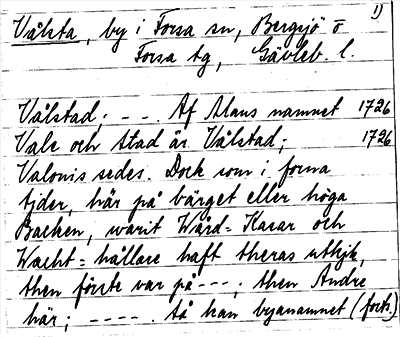 1)
Vålsta, by i Forsa sn, Bergsjö o
Forsa tg, Gävleb. l.
Vålstad; - - . Af Mans namnet 1726
Vale och stad är Vålstad; 1726
Valonis sedes. Dock som i forna
tjder, här på bärget eller höga
Backen, warit Wård=Karar och
Wacht=hållare haft theras utkjk,
then förste var på - - - ; then Andre
här; - - - - . Så kan byanamnet (forts.)